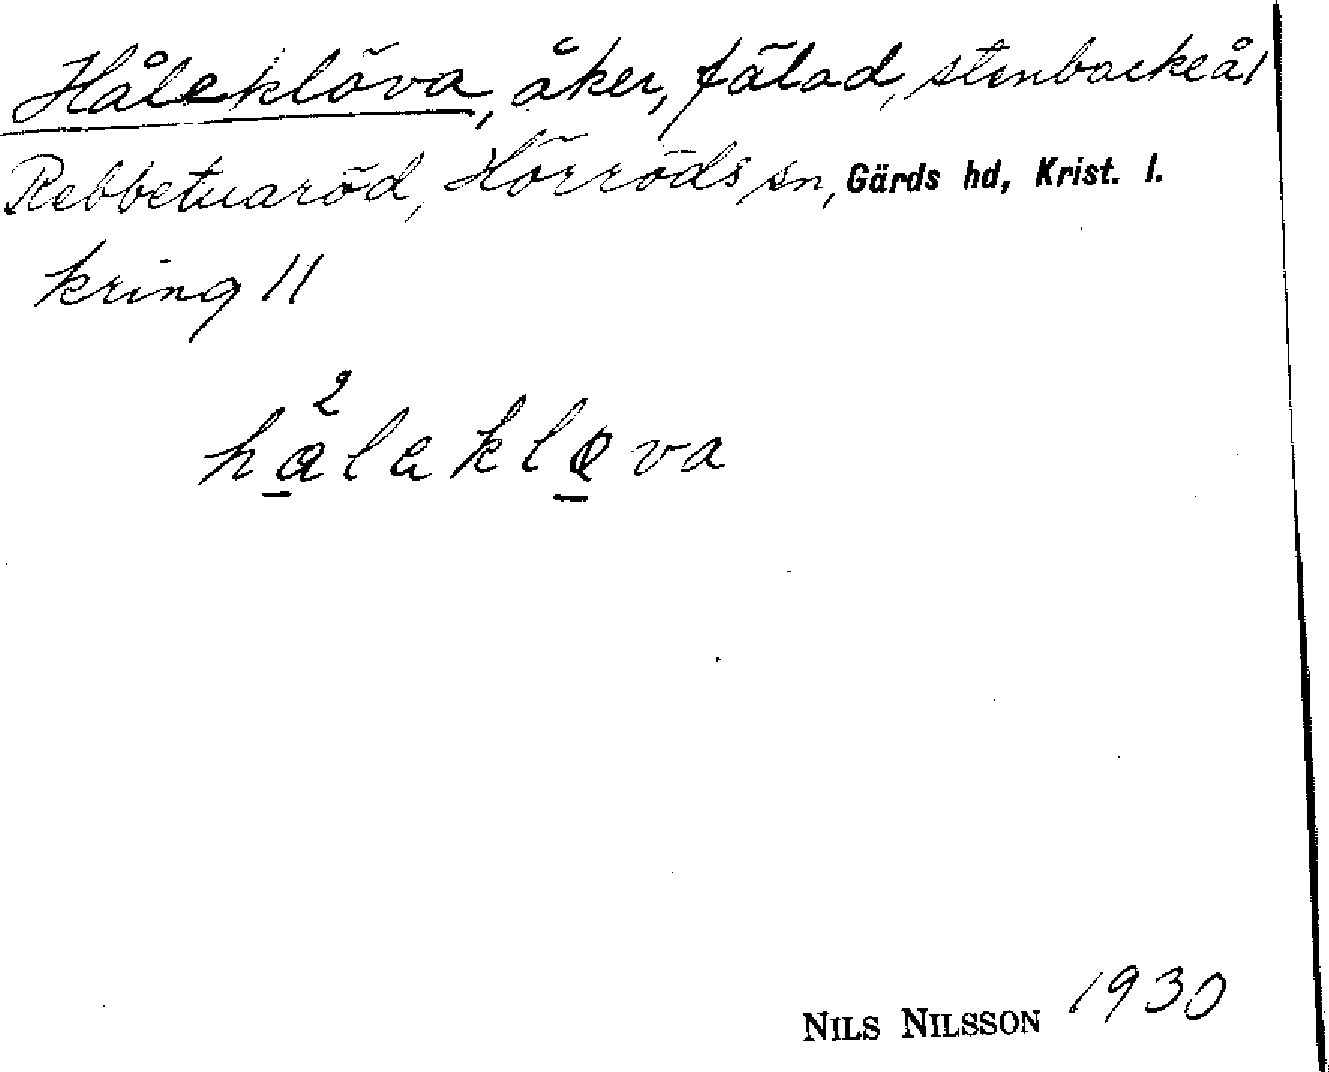 Håleklöva, åker, fälad, stenbackeås
Rebbetuaröd, Hörröds sn, Gärds hd, Krist. l.
kring 11
2
hålakløva
NILS NILSSON 1930